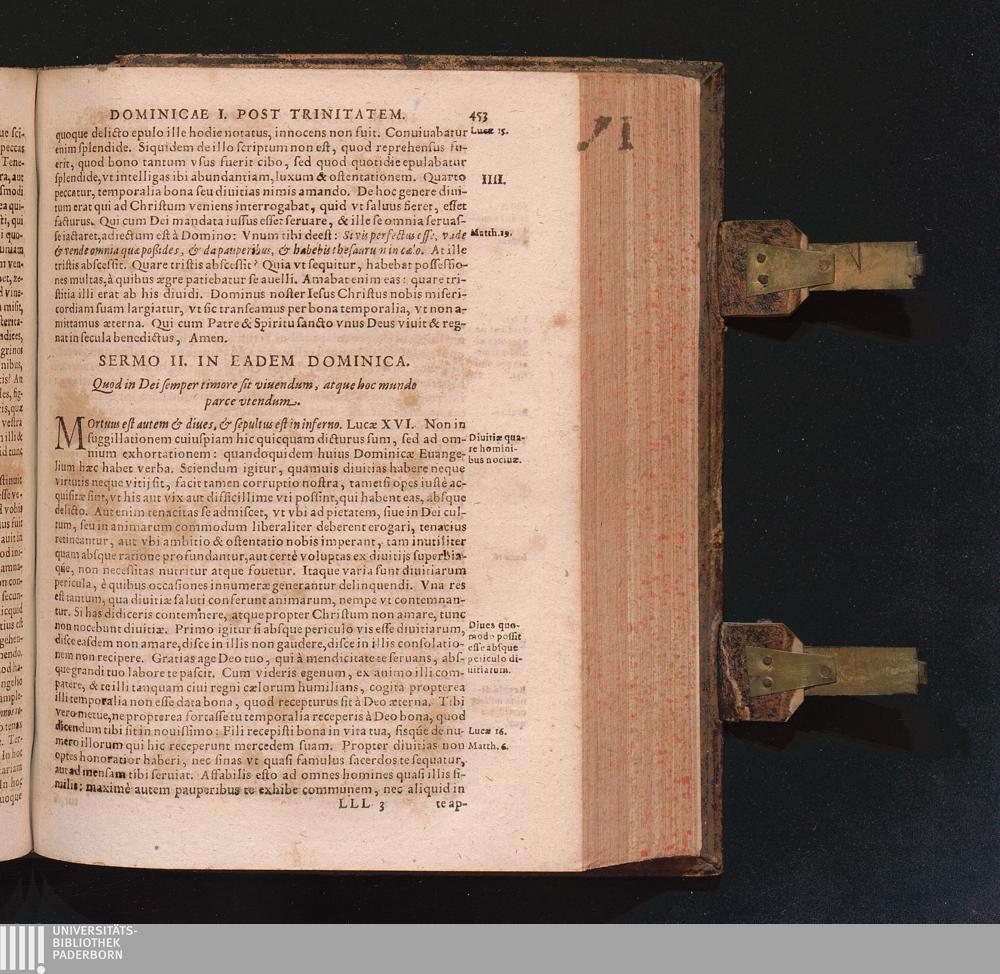 DOMINICAE I. POST TRINITATEM. 453
quoque delicto epulo ille hodie notatus, innocens non fuit. Conuiuabatur
enim splendide. Siquidem de illo scriptum non est, quod reprehensus fu-
erit, quod bono tantum vsus fuerit cibo, sed quod quotidie epulabatur
splendide, vt intelligas ibi abundantiam, luxum & ostentationem. Quarto
peccatur, temporalia bona seu diuitias nimis amando. De hoc genere diui-
tum erat qui ad Christum veniens interrogabat, quid vt saluus fieret, esset
facturus. Qui cum Dei mandata iussus esset seruare, & ille se omnia seruas-
se iactaret, adiectum est à Domino: Vnum tibi deest: Si vis perfectus esse, vade
& vende omnia quæ possides, & da pauperibus, & habebis thesaurum in cælo. At ille
tristis abscessit. Quare tristis abscessit? Quia vt sequitur, habebat possessio-
nes multas, à quibus ægre patiebatur se auelli. Amabat enim eas: quare tri-
stitia illi erat ab his diuidi. Dominus noster Iesus Christus nobis miseri-
cordiam suam largiatur, vt sic transeamus per bona temporalia, vt non a-
mittamus æterna. Qui cum Patre & Spiritu sancto vnus Deus viuit & reg-
nat in secula benedictus, Amen.
Lucæ 15.
IIII.
Matth. 19.
SERMO II. IN EADEM DOMINICA.
Quod in Dei semper timore sit viuendum, atque hoc mundo
parce vtendum.
MOrtuus est autem & diues, & sepultus est in inferno. Lucæ XVI. Non in
suggillationem cuiuspiam hic quicquam dicturus sum, sed ad om-
nium exhortationem: quandoquidem huius Dominicæ Euange-
lium hæc habet verba. Sciendum igitur, quamuis diuitias habere neque
virtutis neque vitij sit, facit tamen corruptio nostra, tametsi opes iustè ac-
quisitæ sint, vt his aut vix aut difficillime vti possint, qui habent eas, absque
delicto. Aut enim tenacitas se admiscet, vt vbi ad pietatem, siue in Dei cul-
tum, seu in animarum commodum liberaliter deberent erogari, tenacius
retineantur, aut vbi ambitio & ostentatio nobis imperant, tam inutiliter
quam absque ratione profundantur, aut certè voluptas ex diuitijs superbia-
que, non necessitas nutritur atque fouetur. Itaque varia sunt diuitiarum
pericula, è quibus occasiones innumeræ generantur delinquendi. Vna res
est tantum, qua diuitiæ saluti conferunt animarum, nempe vt contemnan-
tur. Si has didiceris contemnere, atque propter Christum non amare, tunc
non nocebunt diuitiæ. Primo igitur si absque periculo vis esse diuitiarum,
disce easdem non amare, disce in illis non gaudere, disce in illis consolatio-
nem non recipere. Gratias age Deo tuo, qui à mendicitate te seruans, abs-
que grandi tuo labore te pascit. Cum videris egenum, ex animo illi com-
patere, & te illi tanquam ciui regni cælorum humilians, cogita propterea
illi temporalia non esse data bona, quod recepturus sit à Deo æterna. Tibi
vero metue, ne propterea fortasse tu temporalia receperis à Deo bona, quod
dicendum tibi sit in nouissimo: Fili recepisti bona in vita tua, sisque de nu-
mero illorum qui hic receperunt mercedem suam. Propter diuitias non
optes honoratior haberi, nec sinas vt quasi famulus sacerdos te sequatur,
aut ad mensam tibi seruiat. Affabilis esto ad omnes homines quasi illis si-
milis: maximè autem pauperibus te exhibe communem, nec aliquid in
Diuitiæ qua-
re homini-
bus nociuæ.
Diues quo-
modo possit
esse absque
periculo di-
uitiarum.
Lucæ 16.
Matth. 6.
LLL 3 te ap-
UNIVERSITÄTS-
BIBLIOTHEK
PADERBORN